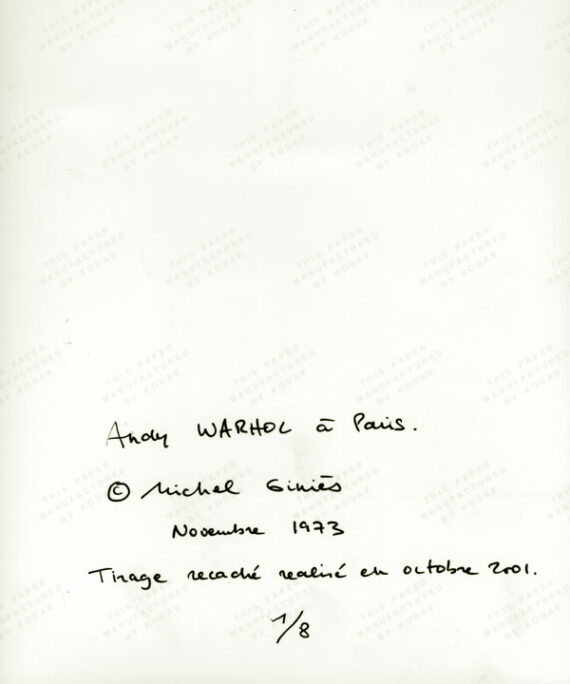 THIS PAPER
MANUFACTURED
BY KODAK
Andy WARHOL à Paris.
© Michel Giniès
Novembre 1973
Tirage recadré realisé en octobre 2001.
1/8